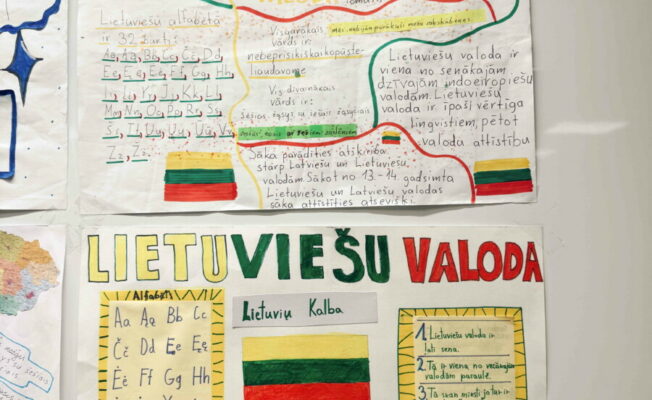 Lietuviešu alfabētā
ir 32 burti:
Aa, Ąą, Bb, Cc, Čč, Dd
Ee, Ęę, Ėė, Ff, Gg, Hh
Ii, Įį, Yy, Jj, Kk, Ll
Mm, Nn, Oo, Pp, Rr, Ss
Šš, Tt, Uu, Ųų, Ūū, Vv
Zz, Žž
Visgarākais
vārds ir:
nebeprisikiškiakopūste-
liaudavome
Visdīvainākais
vārds ir:
Lietuviešu valoda ir
viena no senākajām
dzīvajām indoeiropiešu
valodām. Lietuviešu
valoda ir īpaši vērtīga
lingvistiem, pētot
valoda attīstību
Sāka parādīties atšķirība
starp Latviešu un Lietuviešu
valodām. Sākot no 13-14 gadsimta
Lietuviešu un Latviešu valodas
sāka attīstīties atsevišķi.
LIETUVIEŠU VALODA
Alfabēts
Aa Ąą Bb Cc
Čč Dd Ee Ęę
Ėė Ff Gg Hh
Lietuvių Kalba
1. Lietuviešu valoda ir
ļoti sena.
2. Tā ir viena no vecākajām
valodām pasaulē.
3.